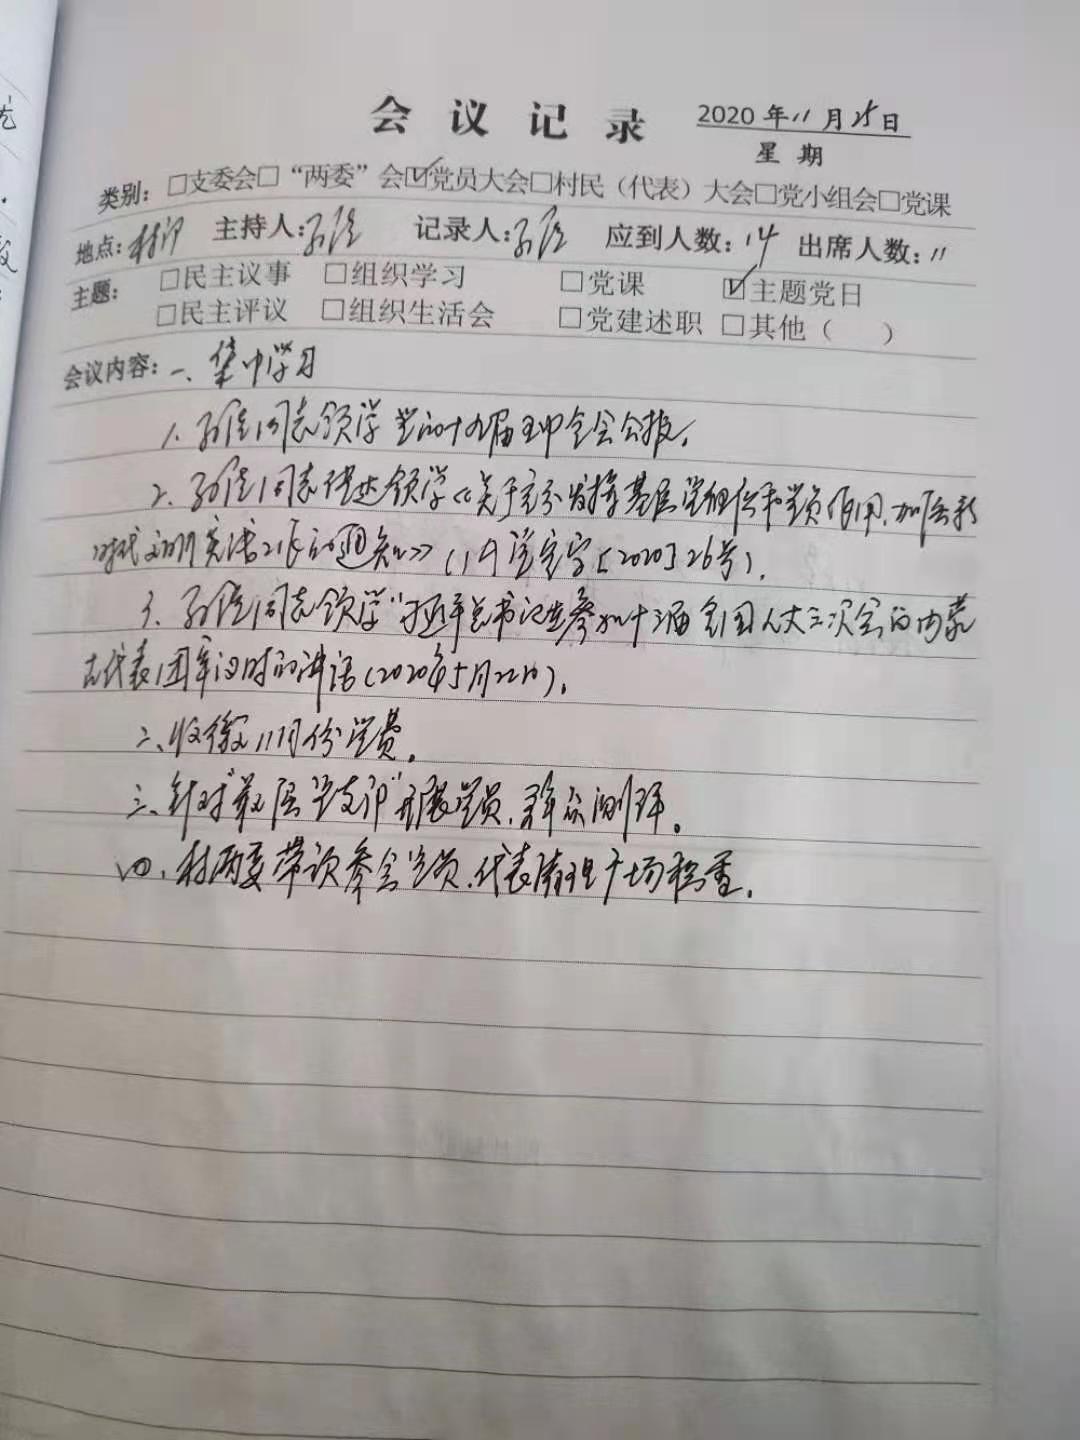 会议记录
2020年11月25日
星期
类别：□支委会□“两委”会☑党员大会□村民（代表）大会□党小组会□党课
地点：村部 主持人： 记录人： 应到人数：14 出席人数：11
主题：□民主议事 □组织学习 □党课 ☑主题党日
□民主评议 □组织生活会 □党建述职 □其他（ ）
会议内容：一、集中学习
1. 同志领学党的十九届五中全会公报。
2. 同志传达领学《关于充分发挥基层党组织和党员作用，加强新
时代文明实践工作的通知》（ 党宣字[2020]26号）。
3. 同志领学“习近平总书记在参加十三届全国人大三次会议内蒙
古代表团审议时的讲话（2020年5月22日）。
二、收缴11月份党费。
三、针对“最强党支部”开展党员、群众测评。
四、村两委带领参会党员、代表清理广场 。